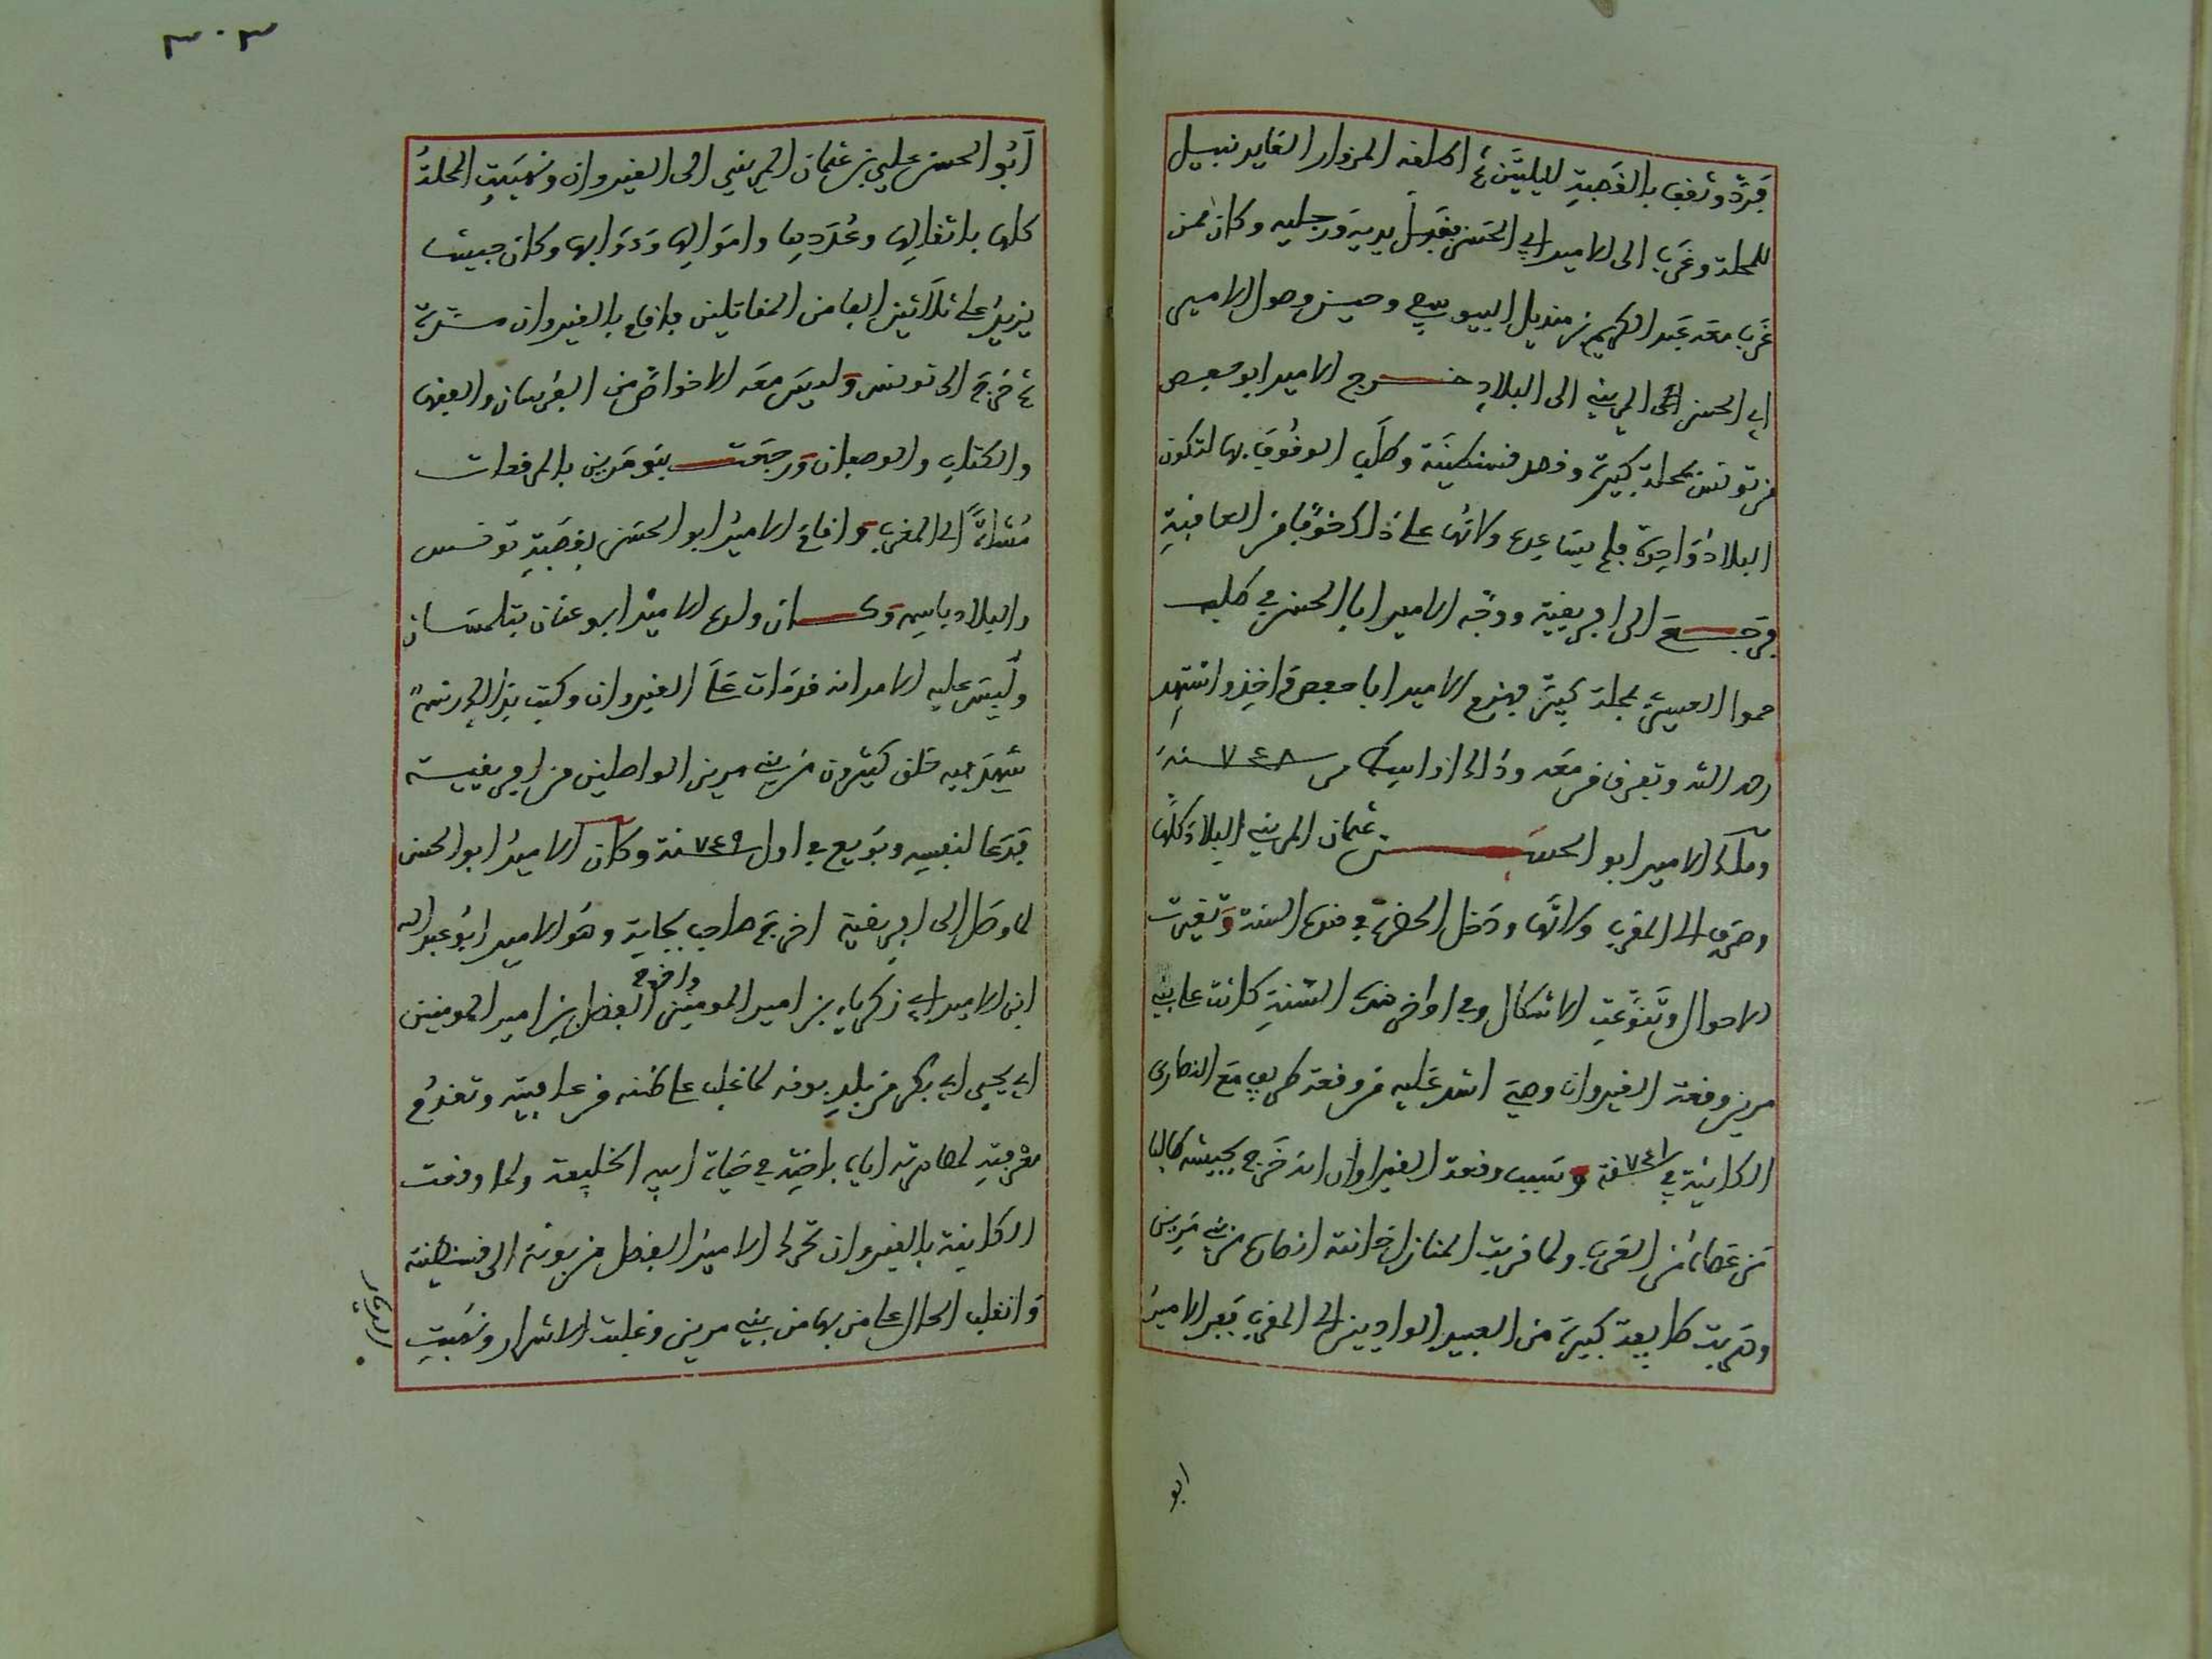 فردّ وثقف بالقصبة لليلتين ثم اطلقه المزوار القايد نبيل
للمحلة وغرب الى الامير ابي الحسن فقبل يديه ورجليه وكان ممن
غرب معه عبد الكريم بن منديل وحين وصول الامير
ابي الحسن المريني الى البلاد خرج الامير ابو حفص
من تونس بمحلة كبيرة وقصد قسنطينة وطلب الوقوف بها لتكون
البلاد واحدة فلم يساعده ولاتها على ذلك خوفا من العاقبة
فرجع الى افريقية ووجه الامير ابا الحسن في طلبه
حموا العسري بمحلة كبيرة فهزم الامير ابا حفص واخذ واشتهد
رحمه الله وتفرق من معه وذلك اواسط سنة ٧٤٨
وملك الامير ابو الحسن بن عثمان المريني البلاد كلها
وصرف الى المغرب ولاتها ودخل الحضرة في هذه السنة وتغيرت
الاحوال وتنوعت الاشكال وفي اواخر هذه السنة كانت على بني
مرين وقعة القيروان وهي اشد عليه من وقعة طريف مع النصارى
الكائنة في سنة ٧٤١ وسبب وقعة القيروان انه خرج بجيشه طالبا
من عصاه من العرب ولما قربت المنازل خانته انصاره من بني مرين
وهربت طايفة كبيرة من العبيد الوادين الى المغرب ففر الامير
ابو
٣٠٣
ابو الحسن علي بن عثمان المريني الى القيروان ونهبت المحلة
كلها باثقالها وعددها واموالها ودوابها وكان جيشا
يزيد على ثلاثين الفا من المقاتلين فاقام بالقيروان مدة
ثم خرج الى تونس وليس معه الا خواص من الفرسان والفقها
والكتاب والوصفان ورجعت بنو مرين بالمرقعات
مشاة الى المغرب واقام الامير ابو الحسن بقصبة تونس
والبلاد بايديه وكان ولده الامير ابو عنان بتلمسان
ولبس عليه الامر انه قد مات على القيروان وكتب بذلك رسم
شهد فيه خلق كثيرون من بني مرين الواصلين من افريقية
فدعا لنفسه وبويع في اول سنة ٧٤٩ وكان الامير ابو الحسن
لما وصل الى افريقية اخرج صاحب بجاية وهو الامير ابو عبد الله
ابن الامير ابي زكرياء بن امير المومنين واخرج الفضل بن امير المومنين
ابي يحيى ابي بكر من بلد بونه لما غلب على ظنه من عاقبته وتقدم
معرفته لمصاهرته اياه باخته في حياة ابيه الخليفة ولما وقعت
الكاينة بالقيروان تحرك الامير الفضل من بونة الى قسنطينة
وانقلب الحال على من بها من بني مرين وغلبت الاشرار ونهبت
الديار